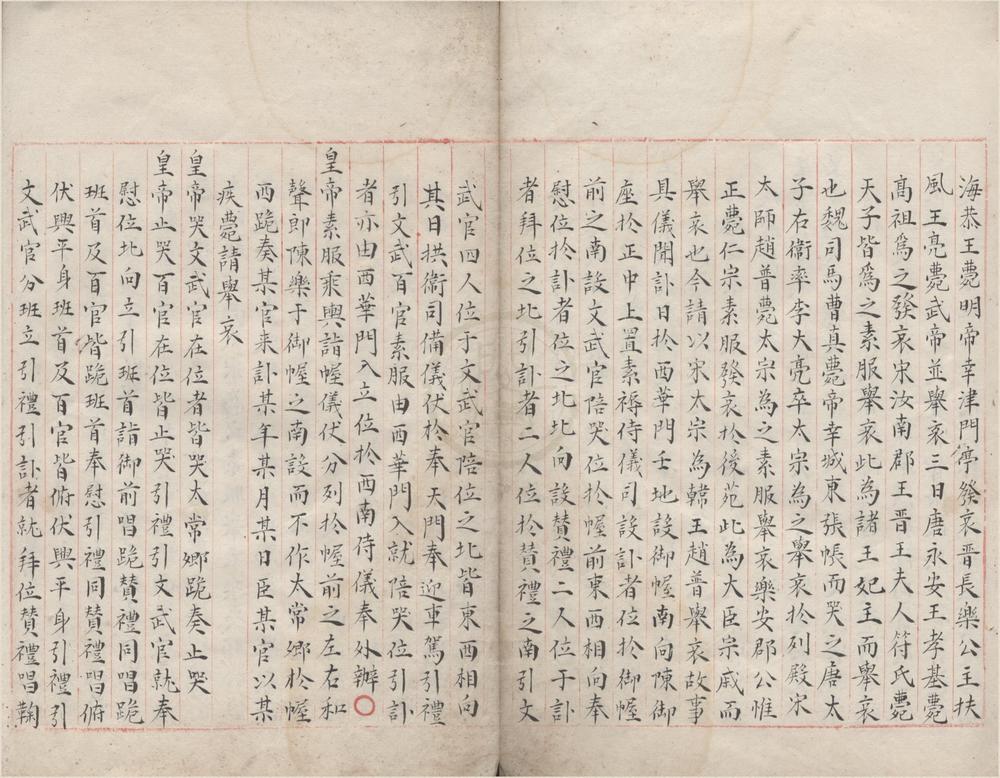 海恭王薨明帝幸津門亭發哀晉長樂公主扶
風王亮薨武帝並舉哀三日唐永安王孝基薨
高祖為之發哀宋汝南郡王晉王夫人符氏薨
天子皆為之素服舉哀此為諸王妃主而舉哀
也魏司馬曹真薨帝幸城東張帳而哭之唐太
子右衞率李大亮卒太宗為之舉哀扵列殿宋
太師趙普薨太宗為之素服舉哀樂安郡公惟
正薨仁宗素服發哀扵後苑此為大臣宗戚而
舉哀也今請以宋太宗為韓王趙普舉哀故事
具儀聞訃日扵西華門壬地設御幄南向陳御
座扵正中上置素褥侍儀司設訃者位扵御幄
前之南設文武官陪哭位扵幄前東西相向奉
慰位扵訃者位之北北向設贊禮二人位于訃
者拜位之北引訃者二人位扵贊禮之南引文
武官四人位于文武官陪位之北皆東西相向
其日拱衞司備儀伏扵奉天門奉迎車駕引禮
引文武百官素服由西華門入就陪哭位引訃
者亦由西華門入立位扵西南侍儀奉外辦○
皇帝素服乘輿詣幄儀伏分列扵幄前之左右和
聲郎陳樂于御幄之南設而不作太常卿扵幄
西跪奏某官来訃某年某月某日臣某官以某
疾薨請舉哀
皇帝哭文武官在位者皆哭太常卿跪奏止哭
皇帝止哭百官在位皆止哭引禮引文武官就奉
慰位北向立引班首詣御前唱跪贊禮同唱跪
班首及百官皆跪班首奉慰引禮同贊禮唱俯
伏興平身班首及百官皆俯伏興平身引禮引
文武官分班立引禮引訃者就拜位贊禮唱鞠